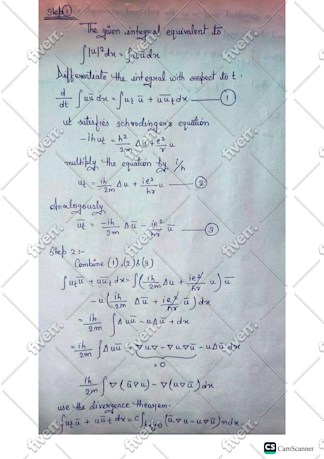 Step 1
The given integral equivalent to
∫|u|²dx = ∫uūdx
Differentiate the integral with respect to t.
d/dt ∫uū dx = ∫ut ū + uūt dx — ①
ut satisfies schrodinger's equation
-ihut = h²/2m Δu + e²/r u
multiply the equation by i/h
ut = ih/2m Δu + ie²/hr u — ②
Analogously
ūt = -ih/2m Δū - ie²/hr ū — ③
Step 2:-
Combine (1), (2) & (3)
∫utū + uūt dx = ∫(ih/2m Δu + ie²/hr u) ū
-u(ih/2m Δū + ie²/hr ū) dx
= ih/2m ∫Δuū - uΔū + dx
= ih/2m ∫Δuū + ∇u∇ū - ∇u∇ū - uΔū dx
= 0
ih/2m ∫∇(ū∇u) - ∇(u∇ū) dx
use the divergence theorem.
∫utū + uūt dx = (ū∇u - u∇ū)ndx
fiverr.
CS CamScanner